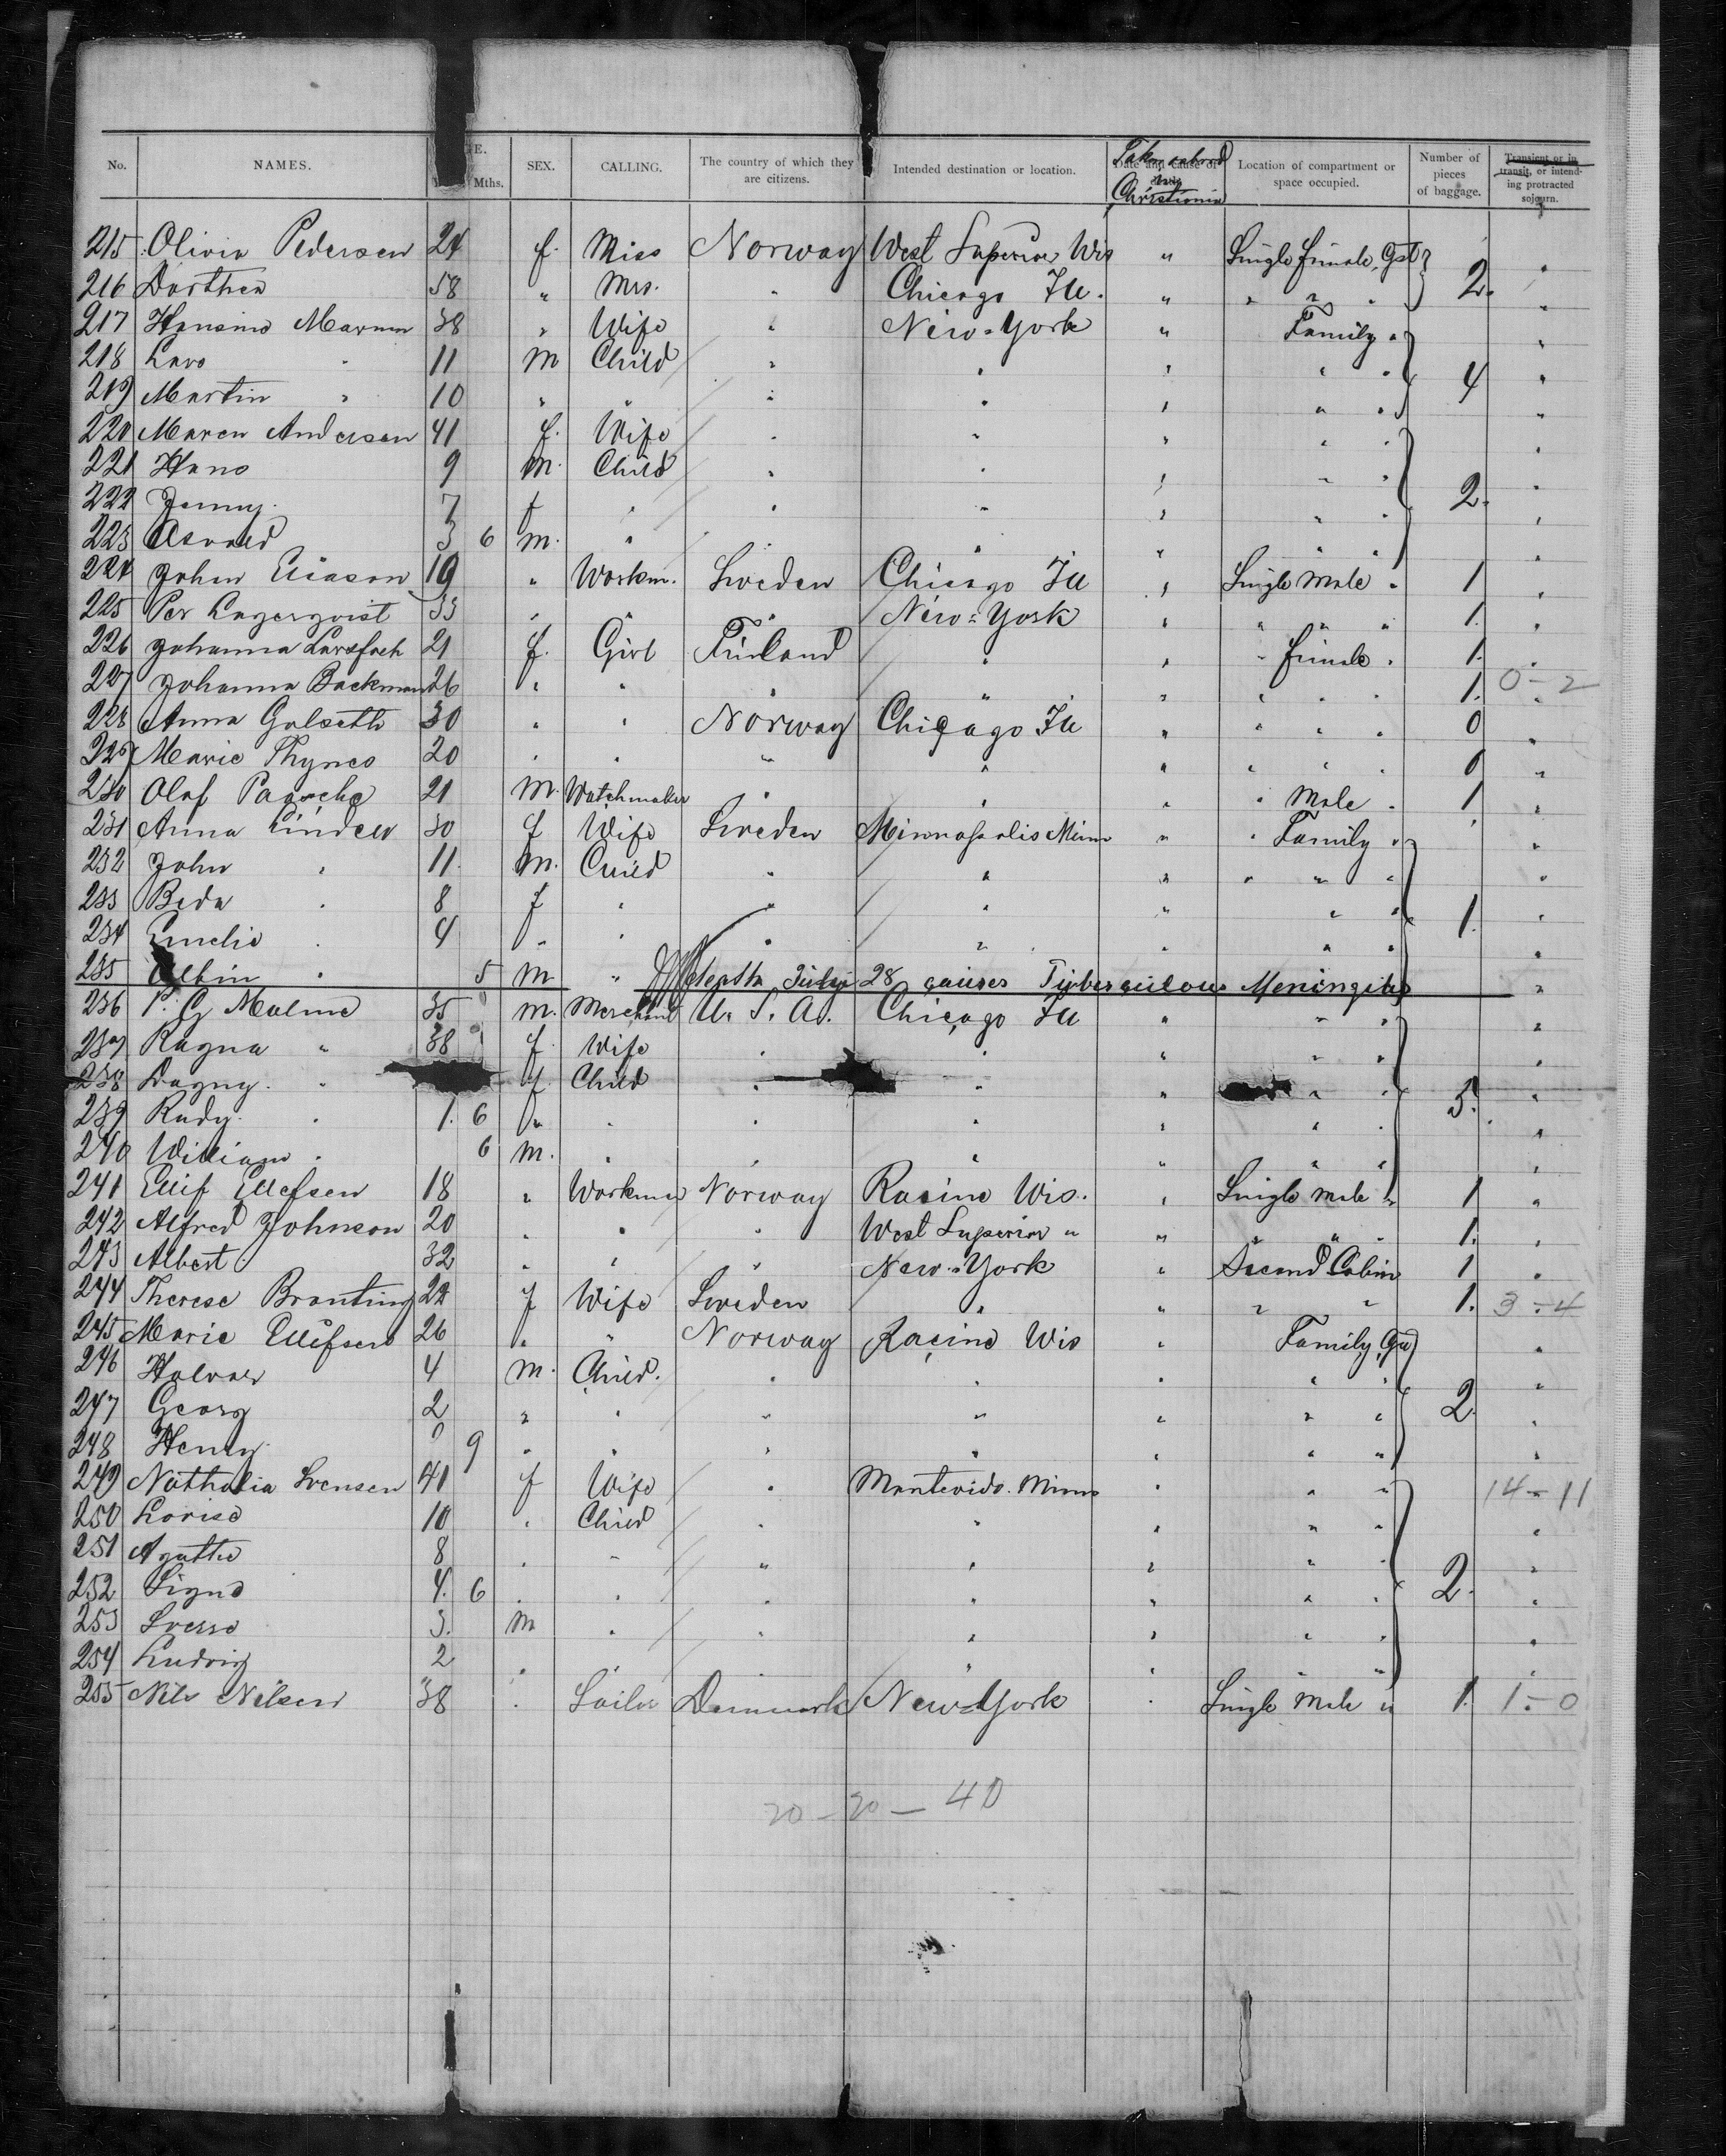 No. NAMES. E. Mths. SEX. CALLING. The country of which they are citizens. Intended destination or location. Date and Cause of Taken aboard in Christiania Location of compartment or space occupied. Number of pieces of baggage. Transient or in transit, or intending protracted sojourn.
215 Olivia Pedersen 24 f. Miss Norway West Superior Wis " Single female, Gst
216 Dorthea 58 " Mrs. " Chicago Ill. " " " " 2. "
217 Hansine 38 " Wife " New=York " Family " "
218 Lars " 11 m Child " " " " " "
219 Martin " 10 " " " " " " " 4 "
220 Maren Andersen 41 f. Wife " " " " " "
221 Hans 9 m. Child " " " " " "
222 Jenny. 7 f " " " " " " 2. "
223 Asvald 3 6 m. " " " " " " "
224 John Eliason 19 " Workm. Sweden Chicago Ill " Single Male " 1 "
225 Per Lagerqvist 33 " " " New=York " " " " 1. "
226 Johanna 21 f. Girl Finland " " " female " 1. "
227 Johanna Backman 26 " " " " " " " " 1. 0-2
228 Anna Golseth 30 " " Norway Chicago Ill " " " " 0 "
229 Marie Thynes 20 " " " " " " " " 0 "
230 Olaf Paasche 21 m. Watchmaker " " " " Male " 1 "
231 Anna Lindell 30 f Wife Sweden Minnapolis Minn " " Family " "
232 John " 11. m. Child " " " " " " "
233 Beda " 8 f " " " " " " 1. "
234 Emelie " 4 " " " " " " " "
235 Albin " 5 m " Death July 28 causes Tuberculous Meningitis "
236 P. G Malme 35 m. Merchant U. S. A. Chicago Ill " " " "
237 Ragna " 38 f. Wife " " " " " "
238 Dagny. " f. Child " " " " " "
239 Rudy. " 1. 6 " " " " " " " "
240 William " 6 m. " " " " " " "
241 Ellif Ellefsen 18 " Workman Norway Racine Wis. " Single male " 1 "
242 Alfred Johnson 20 " " " West Superior " " " " " 1. "
243 Albert 32 " " " New=York " Second Cabin 1 "
244 Therese Branting 22 f Wife Sweden " " " " 1. 3-4
245 Marie Ellifsen 26 " " Norway Racine Wis " Family, "
246 Halvar 4 m. Child. " " " " " "
247 Georg 2 " " " " " " " 2. "
248 Henry. 0 9 " " " " " " " "
249 Nathalia Svensen 41 f Wife " Montevido. Minn " " " 14-11
250 Lovise 10 " Child " " " " " "
251 Agathe 8 " " " " " " " "
252 Signe 4. 6 " " " " " " " 2. "
253 Sverre 3. m " " " " " " "
254 Ludvig 2 " " " " " " " "
255 Nils Nilsen 38 " Sailor Denmark New=York " Single Male " 1. 1-0
20-20-40